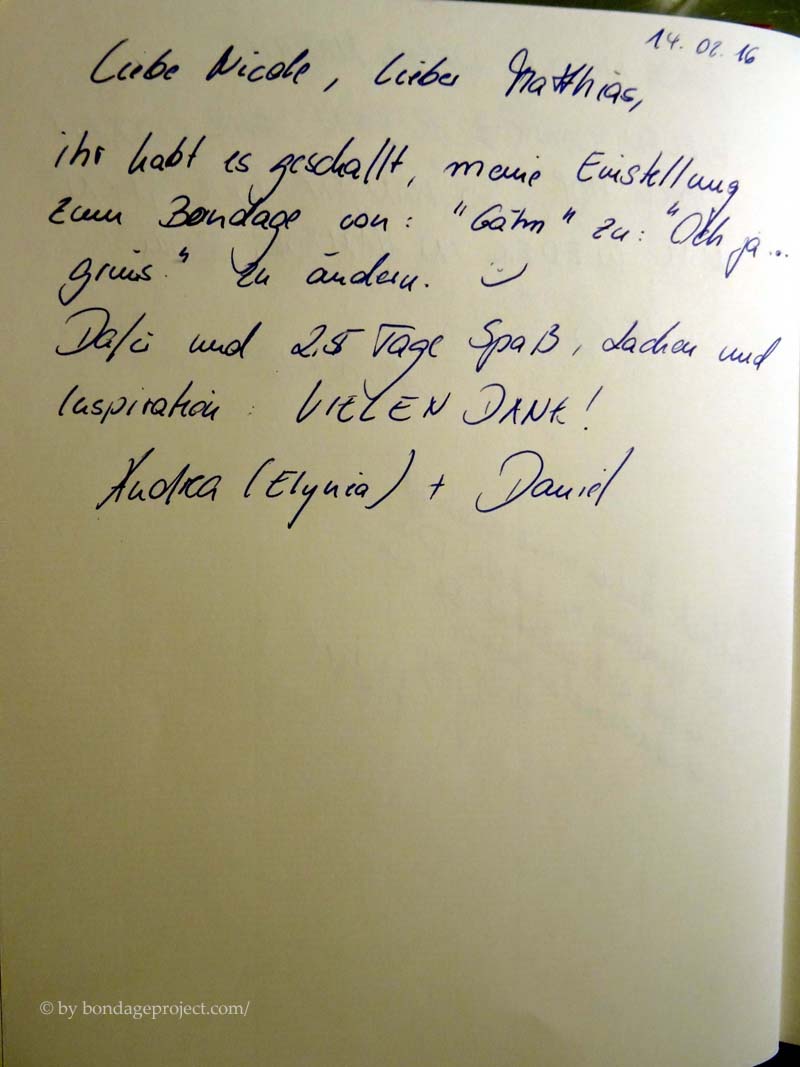 14.02.16
Liebe Nicole, lieber Matthias,
ihr habt es geschafft, meine Einstellung
zum Bondage von: "Gähn" zu: "Och ja...
grins." zu ändern.
Dafür und 2,5 Tage Spaß, Lachen und
Inspiration: VIELEN DANK!
Andrea (Elynia) + Daniel
© by bondageproject.com/